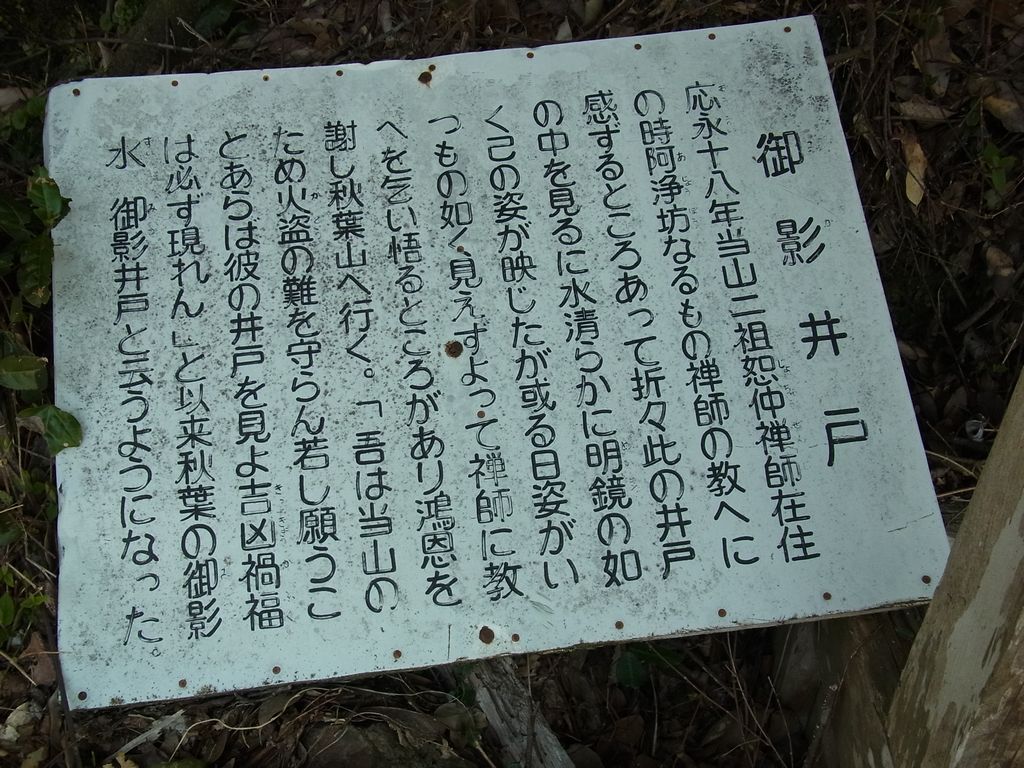 御影井戸
応永十八年当山二祖恕仲禅師在住
の時阿浄坊なるもの禅師の教へに
感ずるところあって折々此の井戸
の中を見るに水清らかに明鏡の如
く己の姿が映じたが或る日姿がい
つもの如く見えずよって禅師に教
へを乞い悟るところがあり鴻恩を
謝し秋葉山へ行く。「吾は当山の
ため火盗の難を守らん若し願うこ
とあらは彼の井戸を見よ吉凶禍福
は必ず現れん」と以来秋葉の御影
水 御影井戸と云うようになった。